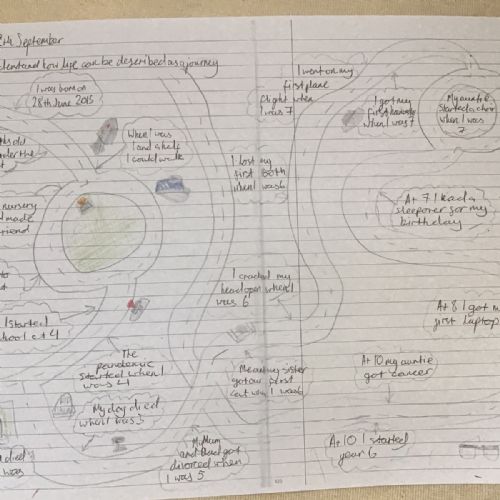 th September
derstand how life can be described as a journey
I was born on
28th June 2015
When I was
1 and a half
I could walk
nursery
made
friend
I started
hool at 4
The
pandemic
started when I
was 4
My dog died
when I was 5
My Mum
and Dad got
divorced when
I was 5
died
was
I lost my
first tooth
when I was 6
I cracked my
head open when I
was 6
Me and my sister
got our first
cat when I was 6
I went on my
first plane
flight when
I was 7
I got my
first
when I was 7
My auntie
started a choir
when I was
7
At 7 I had a
sleepover for my
birthday
At 8 I got m
first laptop
At 10 my auntie
got cancer
At 10 I started
year 6